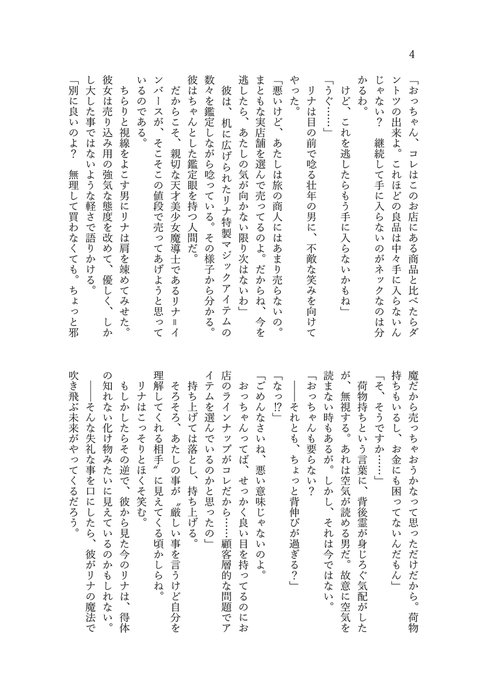 4
「おっちゃん、コレはこのお店にある商品と比べたらダ
ントツの出来よ。これほどの良品は中々手に入らないん
じゃない？　継続して手に入らないのがネックなのは分
かるわ。
けど、これを逃したらもう手に入らないかもね」
「うぐ……」
リナは目の前で唸る壮年の男に、不敵な笑みを向けて
やった。
「悪いけど、あたしは旅の商人にはあまり売らないの。
まともな実店舗を選んで売ってるのよ。だからね、今を
逃したら、あたしの気が向かない限り次はないわ」
彼は、机に広げられたリナ特製マジックアイテムの
数々を鑑定しながら唸っている。その様子から分かる。
彼はちゃんとした鑑定眼を持つ人間だ。
だからこそ、親切な天才美少女魔導士であるリナ＝イ
ンバースが、そこそこの値段で売ってあげようと思って
いるのである。
ちらりと視線をよこす男にリナは肩を竦めてみせた。
彼女は売り込み用の強気な態度を改めて、優しく、しか
し大した事ではないような軽さで語りかける。
「別に良いのよ？　無理して買わなくても。ちょっと邪
魔だから売っちゃおうかなって思っただけだから。荷物
持ちもいるし、お金にも困ってないんだもん」
「そ、そうですか……」
荷物持ちという言葉に、背後霊が身じろぐ気配がした
が、無視する。あれは空気が読める男だ。故意に空気を
読まない時もあるが。しかし、それは今ではない。
「おっちゃんも要らない？
――それとも、ちょっと背伸びが過ぎる？」
「なっ!?」
「ごめんなさいね、悪い意味じゃないのよ。
おっちゃんってば、せっかく良い目を持ってるのにお
店のラインナップがコレだから……顧客層的な問題でア
イテムを選んでいるのかと思ったの」
持ち上げては落とし、持ち上げる。
そろそろ、あたしの事が〝厳しい事を言うけど自分を
理解してくれる相手〟に見えてくる頃かしらね。
リナはこっそりとほくそ笑む。
もしかしたらその逆で、彼から見た今のリナは、得体
の知れない化け物みたいに見えているのかもしれない。
――そんな失礼な事を口にしたら、彼がリナの魔法で
吹き飛ぶ未来がやってくるだろう。